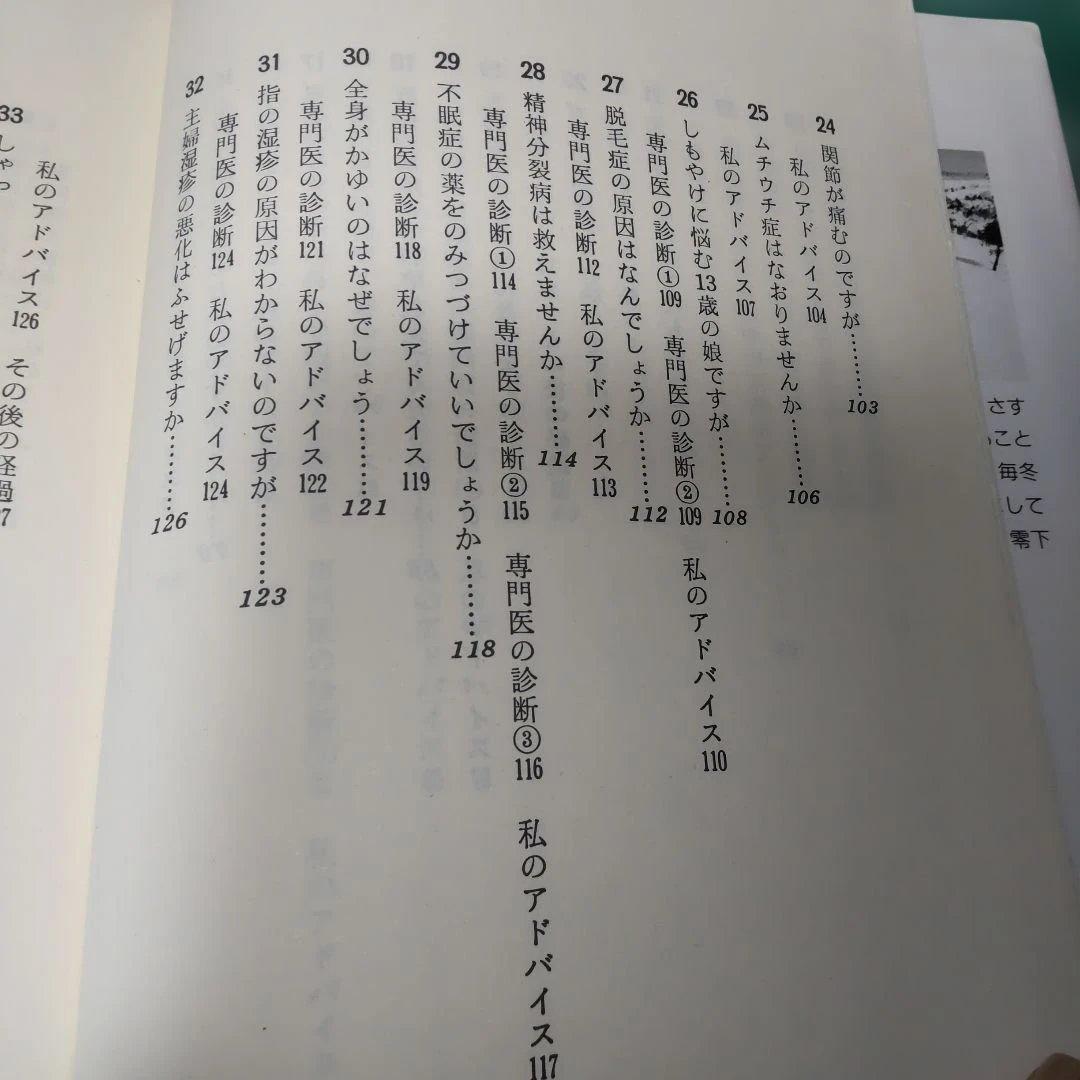 24 関節が痛むのですが…………103
私のアドバイス104
25 ムチウチ症はなおりませんか…………106
私のアドバイス107
26 しもやけに悩む13歳の娘ですが…………108
専門医の診断①109 専門医の診断②109 私のアドバイス110
27 脱毛症の原因はなんでしょうか…………112
専門医の診断112 私のアドバイス113
28 精神分裂病は救えませんか…………114
専門医の診断①114 専門医の診断②115 専門医の診断③116 私のアドバイス117
29 不眠症の薬をのみつづけていいでしょうか…………118
専門医の診断118 私のアドバイス119
30 全身がかゆいのはなぜでしょう…………121
専門医の診断121 私のアドバイス122
31 指の湿疹の原因がわからないのですが…………123
専門医の診断124 私のアドバイス124
32 主婦湿疹の悪化はふせげますか…………126
私のアドバイス126 その後の経過
33 しゃっ
さす
こと
毎冬
して
零下